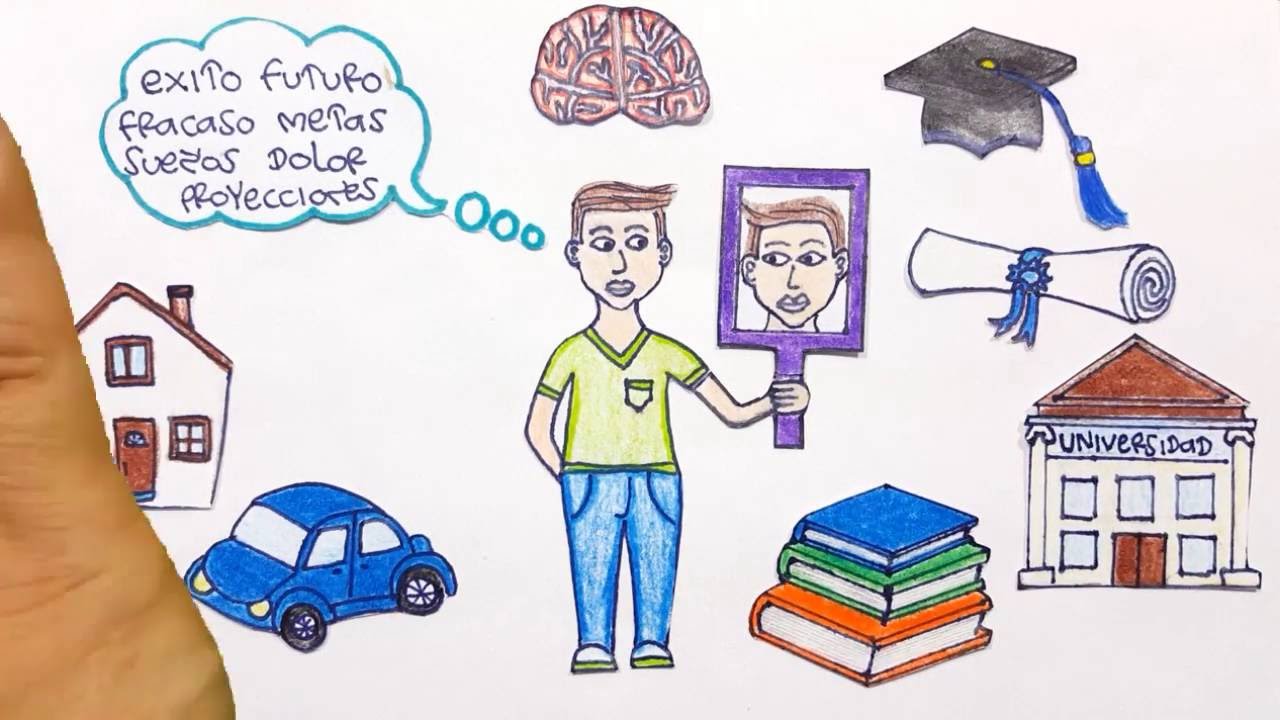 EXITO FUTURO
FRACASO METAS
SUEÑOS DOLOR
PROYECCIONES
UNIVERSIDAD